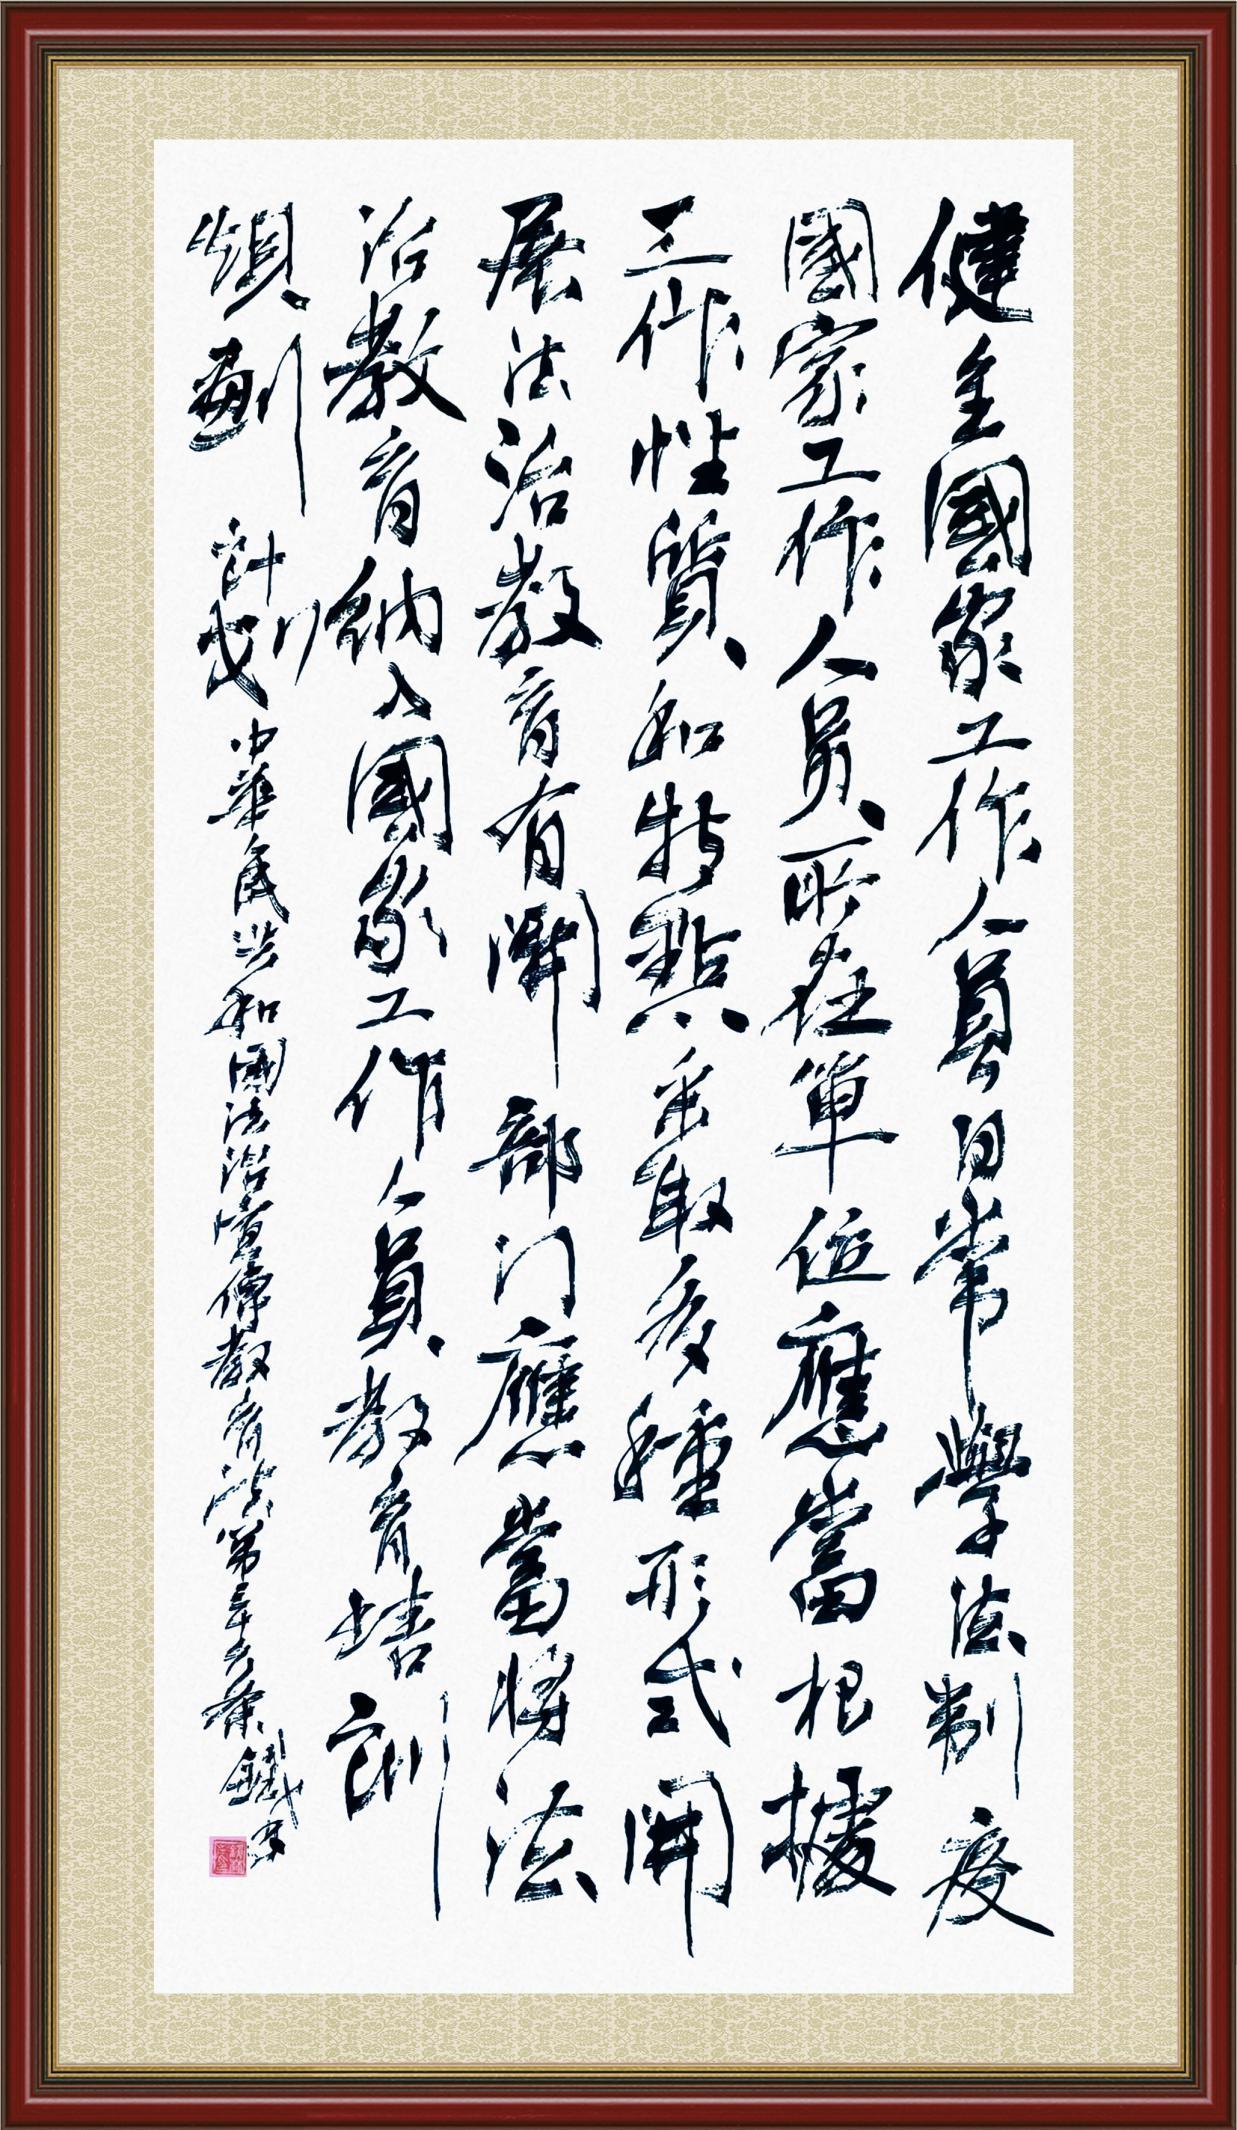 健全國家工作人員日常學法制度
國家工作人員所在單位應當根據
工作性質和特點采取多種形式開
展法治教育有關部门應當將法
治教育納入國家工作人員教育培訓
規劃計划
中華人民共和國法治宣傳教育法第十六條